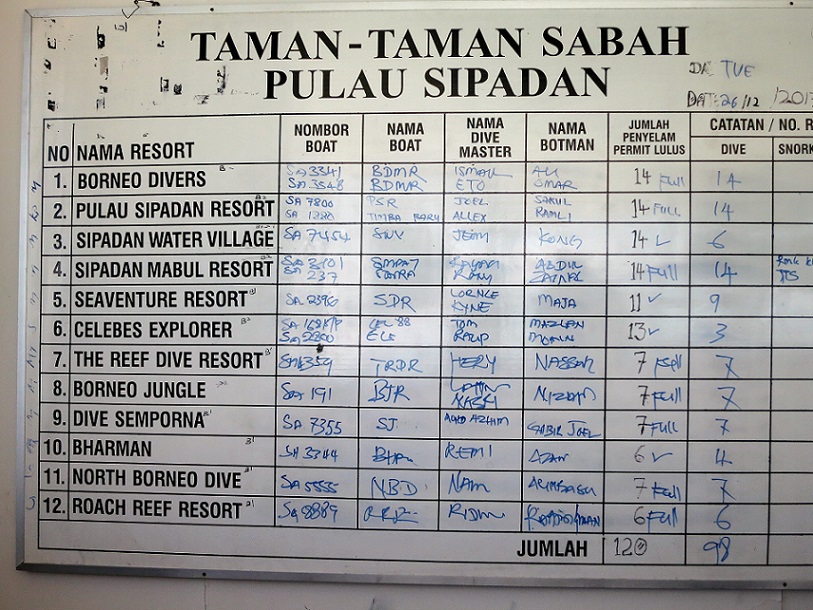 TAMAN-TAMAN SABAH
PULAU SIPADAN
TUE
26/12 /201
NO NAMA RESORT NOMBOR BOAT NAMA BOAT NAMA DIVE MASTER NAMA BOTMAN JUMLAH PENYELAM PERMIT LULUS CATATAN / NO. R
DIVE SNORK
1. BORNEO DIVERS SA 3341 BDMR ISMAIL ALI 14 Full 14
SA 3548 BDMR ETO OMAR
2. PULAU SIPADAN RESORT SA 7800 PSR JOEL 14 FULL 14
SA 1220 TIMBA BARU ALLEX RAMLI
3. SIPADAN WATER VILLAGE SA 7454 SWV KONG 14 ✓ 6
4. SIPADAN MABUL RESORT SA 3101 ABDUL 14 Full 14
SA 237
5. SEAVENTURE RESORT SA 2396 SDR KYNE MAJA 11 ✓ 9
6. CELEBES EXPLORER CEL '88 TOM MAZLAN 13 ✓ 3
7. THE REEF DIVE RESORT TRDR HERY NASSER 7 Full 7
8. BORNEO JUNGLE SA 191 BJR NIZAM 7 Full 7
9. DIVE SEMPORNA SA 7355 SJ GABIR JOEL 7 Full 7
10. BHARMAN SA 3244 REMI AZAN 6 ✓ 4
11. NORTH BORNEO DIVE SA 5555 NBD NAM 7 Full 7
12. ROACH REEF RESORT SA 8889 RRR 6 Full 6
JUMLAH 120 98